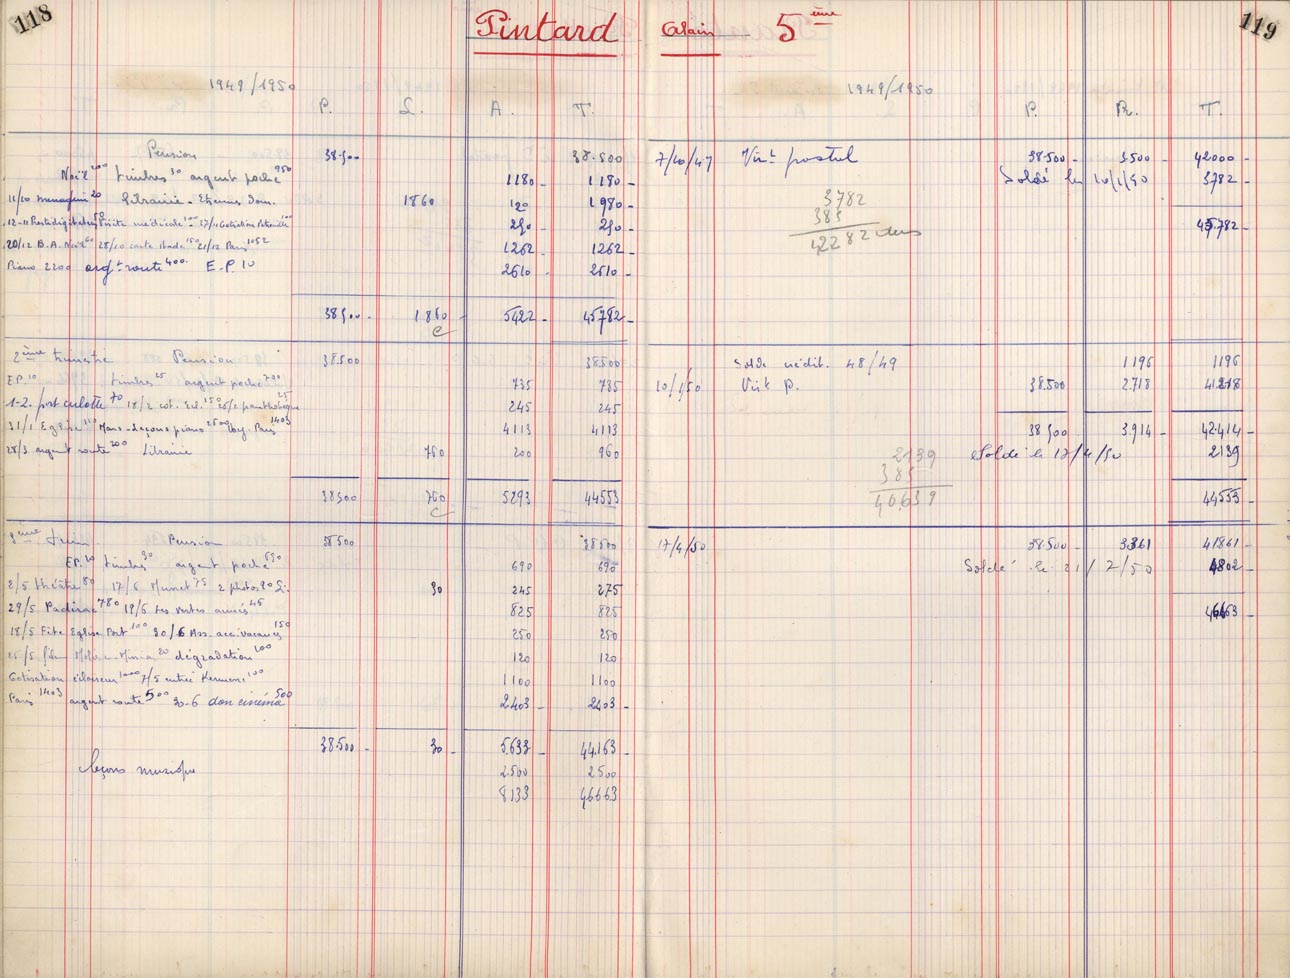 118
Pintard Alain - 5ème
119
1949/1950
P. L. A. T.
Pension 38.500 38.500
Noël 200 timbres 30 argent poche 950 1180 - 1180 -
11/10 20 Librairie - Etrennes Dom. 1860 120 1980 -
12-11 Prestidigitateur 50 Visite médicale 100 - 17/11 Cotisation 100 250 - 250 -
20/12 B.A. Noël 60 28/10 carte stade 150 21/12 Paris 1052 1262 - 1262 -
Piano 2200 argt route 400. E.P. 10 2610 - 2610 -
38500 - 1860 - 5422 - 45782 -
C
2ème trimestre Pension 38.500 38500
E.P. 10 timbres 25 argent poche 700 735 735
1-2. port culotte 70 18/2 cot. Ed. 150 25/2 25 245 245
31/1 Eglise 110 Mars - Leçons piano 2500 Voy. Paris 1403 4113 4113
28/3 argent route 200 Librairie 760 200 960
38500 760 5293 44553
C
3ème Trim. Pension 38500 38500
E.P. 20 timbres 30 argent poche 690 690
2/5 théâtre 80 17/6 75 2 photos 90 L. 30 245 275
29/5 Padirac 780 19/6 Les vertes années 45 825 825
18/5 Fête Eglise Port 100 30/6 Ass. acc. vacances 150 250 250
20 dégradation 100 120 120
Cotisation éclaireur 1000 7/5 entrée Kermesse 100 1100 1100
Paris 1403 argent route 500 30-6 don cinéma 500 2403 - 2403 -
38.500 - 30 - 5.633 - 44.163 -
leçons musique 2.500 2500
8133 46663
1949/1950
P. R. T.
Virt postal 38.500 - 3.500 - 42.000 -
Soldé le 10/1/50 3782 -
3782
385
42282
45.782 -
Solde crédit. 48/49 1196 1196
10/1/50 Virt P. 38.500 2.718 41.218
38500 - 3.914 - 42.414 -
Soldé le 17/4/50 2139
2139
385
40.639
44553 -
17/4/50 38.500 - 3.361 41861 -
Soldé le 21/7/50 4802 -
46663 -